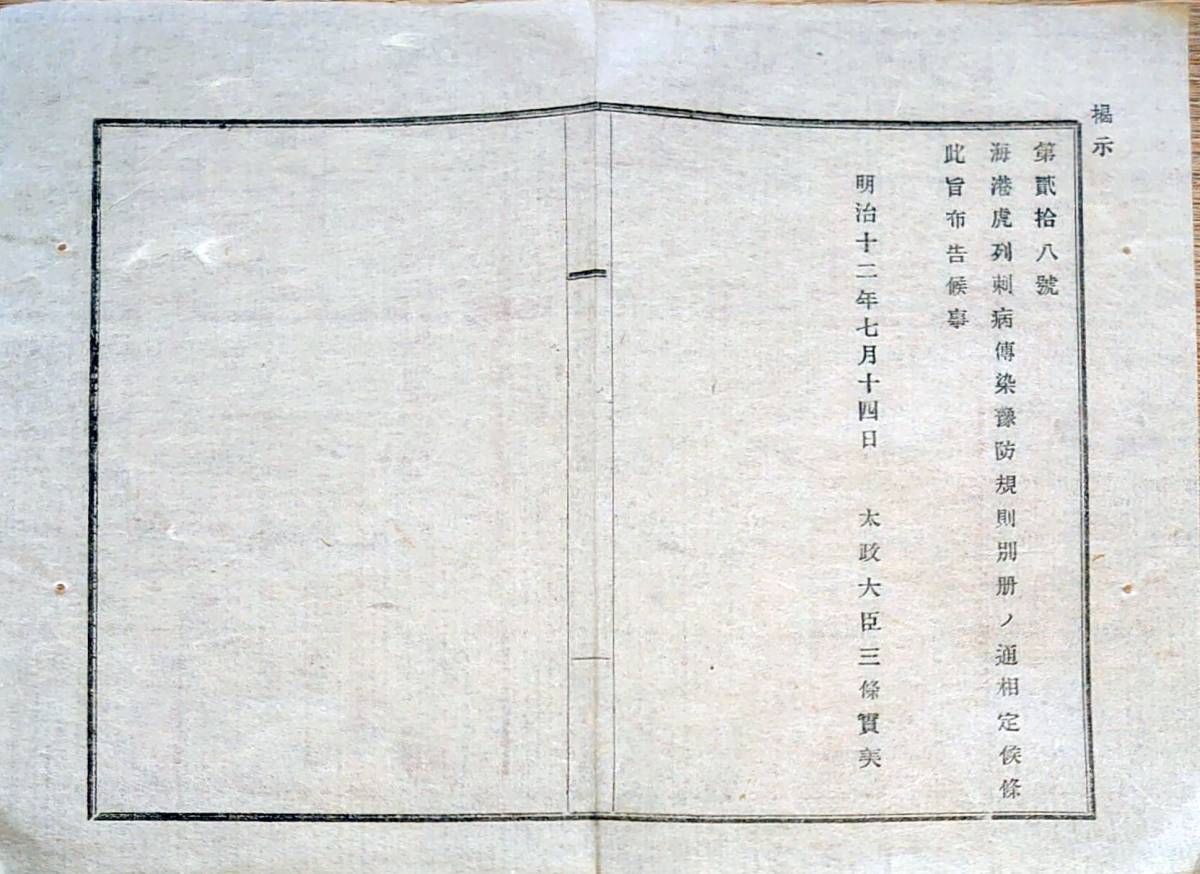 揭示
第貳拾八號
海港虎列刺病傳染豫防規則別册ノ通相定候條
此旨布告候事
明治十二年七月十四日　太政大臣三條實美